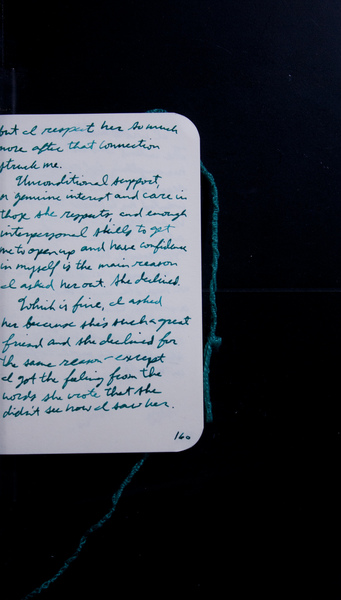 but I respect her so much
more after that connection
struck me.
Unconditional support,
or genuine interest and care in
those she respects, and enough
interpersonal skills to get
me to open up and have confidence
in myself is the main reason
I asked her out. She declined.
Which is fine, I asked
her because she's such a great
friend and she declined for
the same reason - except
I got the feeling from the
words she wrote that she
didn't see how I saw her.
160